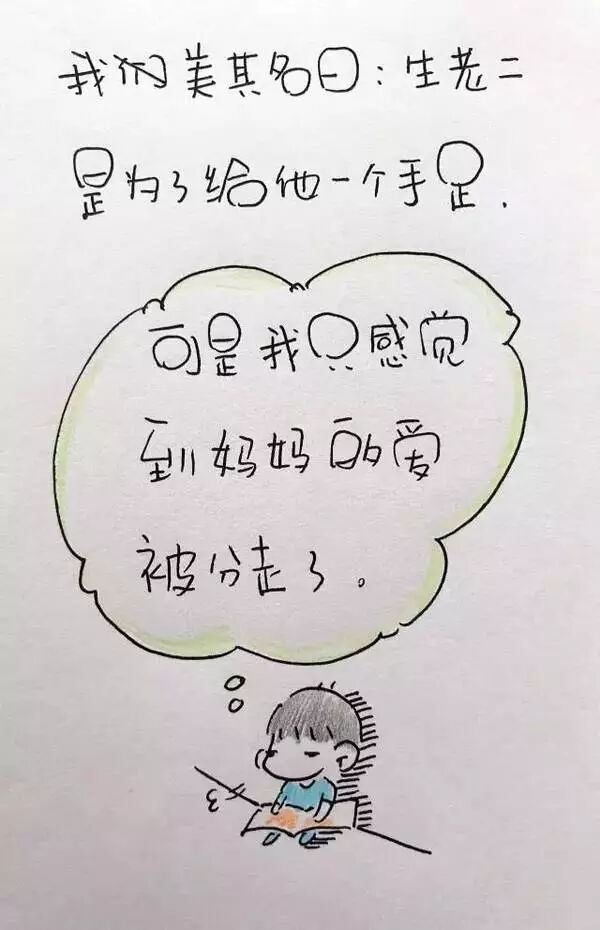 我们美其名曰：生老二
是为了给他一个手足.
可是我只感觉
到妈妈的爱
被分走了。